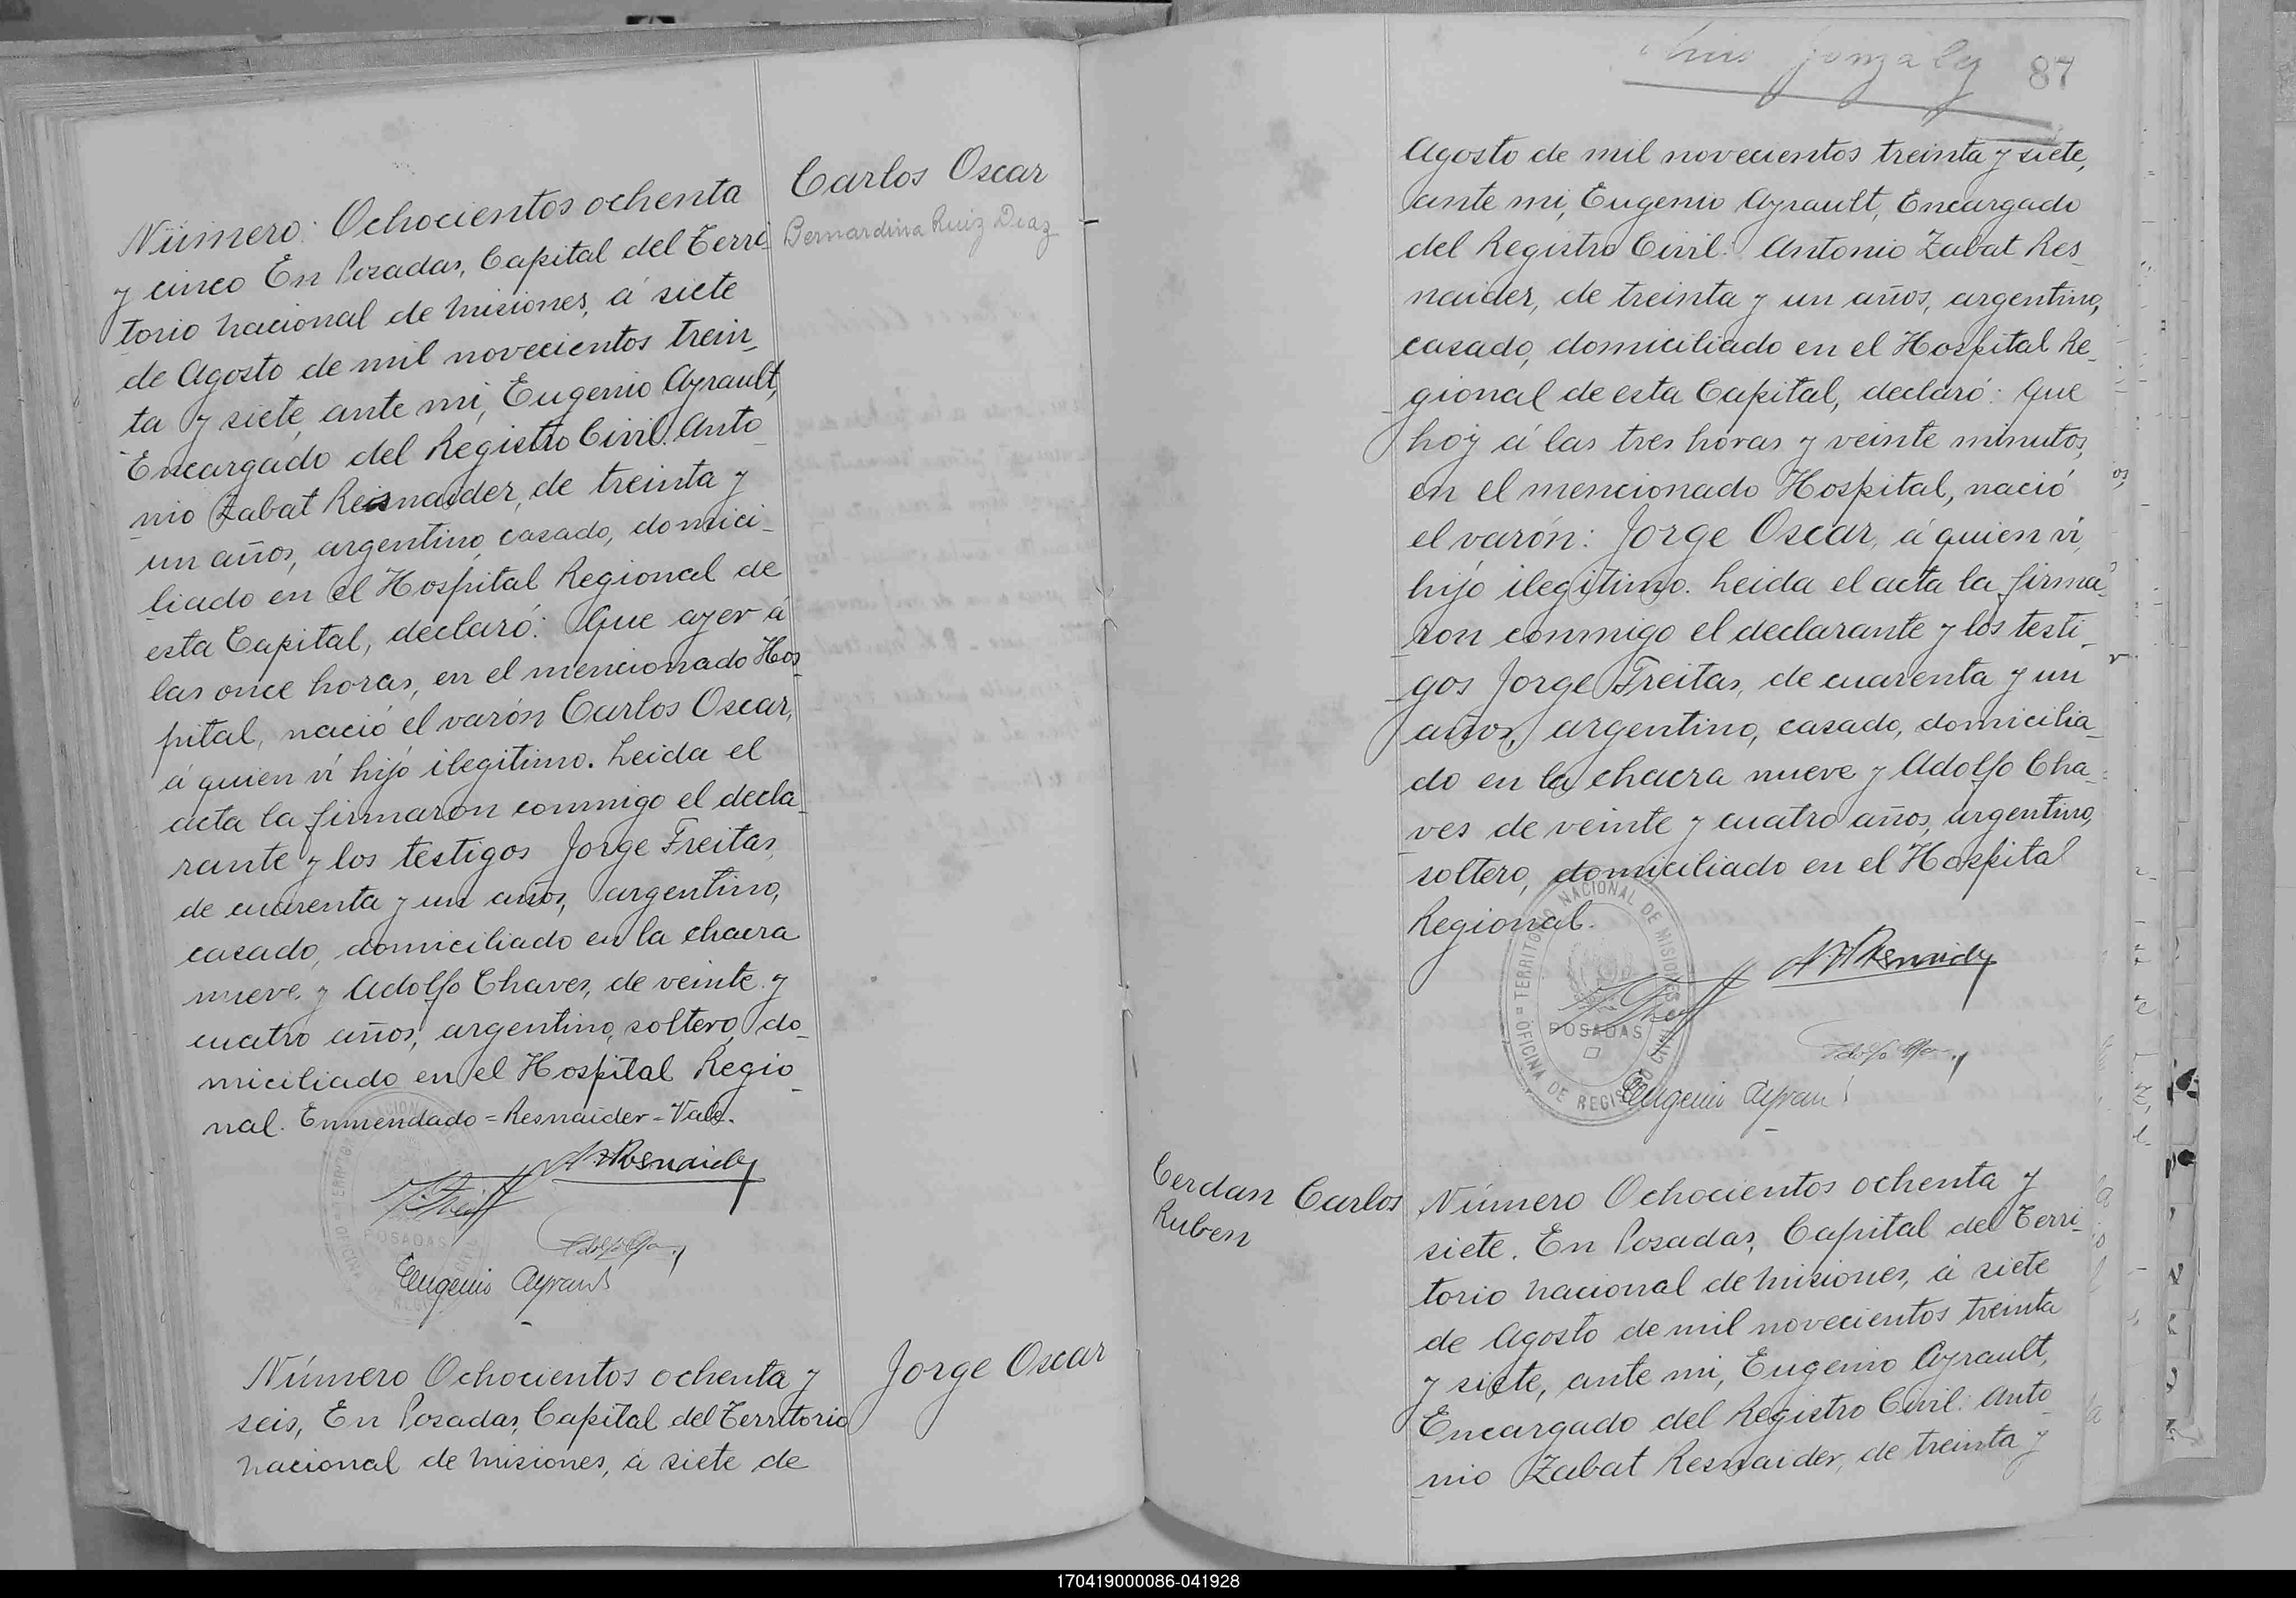 Carlos Oscar
Bernardina Ruiz Diaz
Número: Ochocientos ochenta
y cinco En Posadas, Capital del Terri
torio nacional de Misiones, á siete
de Agosto de mil novecientos trein_
ta y siete, ante mi, Eugenio Ayrault,
Encargado del Registro Civil: Anto_
nio Zabat Resnaider, de treinta y
un años, argentino, casado, domici_
liado en el Hospital Regional de
esta Capital, declaró: Que ayer á
las once horas, en el mencionado Hos_
pital, nació el varón Carlos Oscar,
á quien ví hijo ilegitimo. Leida el
acta la firmaron conmigo el decla_
rante y los testigos Jorge Freitas,
de cuarenta y un años, argentino,
casado, domiciliado en la chacra
nueve, y Adolfo Chaves, de veinte y
cuatro años, argentino, soltero, do_
miciliado en el Hospital Regio_
nal. Enmendado = Resnaider - Vale.
Eugenio Ayraul
Jorge Oscar
Número Ochocientos ochenta y
seis, En Posadas, Capital del Territorio
nacional de Misiones, á siete de
Gonzalez 87
Agosto de mil novecientos treinta y siete,
ante mi, Eugenio Ayrault, Encargado
del Registro Civil: Antonio Zabat Res_
naider, de treinta y un años, argentino,
casado, domiciliado en el Hospital Re_
gional de esta Capital, declaró: Que
hoy á las tres horas y veinte minutos,
en el mencionado Hospital, nació
el varón: Jorge Oscar, á quien ví,
hijo ilegitimo. Leida el acta la firma_
ron conmigo el declarante y los testi_
gos Jorge Freitas, de cuarenta y un
años, argentino, casado, domicilia_
do en la chacra nueve y Adolfo Cha_
ves de veinte y cuatro años, argentino,
soltero, domiciliado en el Hospital
Regional.
TERRITORIO NACIONAL DE MISIONES
POSADAS
OFICINA DE REGISTRO CIVIL
Eugenio Ayraul
Cerdan Carlos
Ruben
Número Ochocientos ochenta y
siete. En Posadas, Capital del Terri_
torio nacional de Misiones, á siete
de Agosto de mil novecientos treinta
y siete, ante mi, Eugenio Ayrault,
Encargado del Registro Civil: Anto_
nio Zabat Resnaider, de treinta y
170419000086-041928